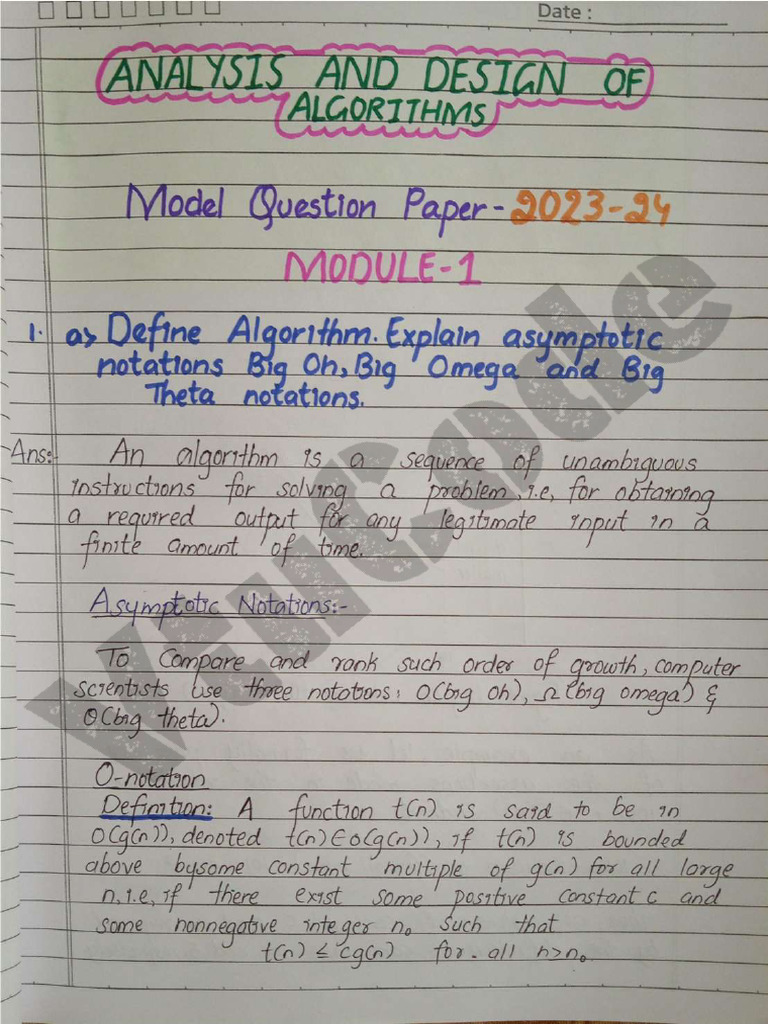 Date :
ANALYSIS AND DESIGN OF
ALGORITHMS
Model Question Paper - 2023-24
MODULE-1
1. a> Define Algorithm. Explain asymptotic
notations Big Oh, Big Omega and Big
Theta notations.
Ans:- An algorithm is a sequence of unambiguous
instructions for solving a problem, i.e, for obtaining
a required output for any legitimate input in a
finite amount of time.
Asymptotic Notations:-
To Compare and rank such order of growth, computer
scientists use three notations: O(big oh), Ω(big omega) &
Θ(big theta).
O-notation
Definition: A function t(n) is said to be in
O(g(n)), denoted t(n)∈O(g(n)), if t(n) is bounded
above bysome constant multiple of g(n) for all large
n, i.e, if there exist some positive constant c and
some nonnegative integer n₀ such that
t(n) ≤ cg(n) for all n>n₀
VTUCode